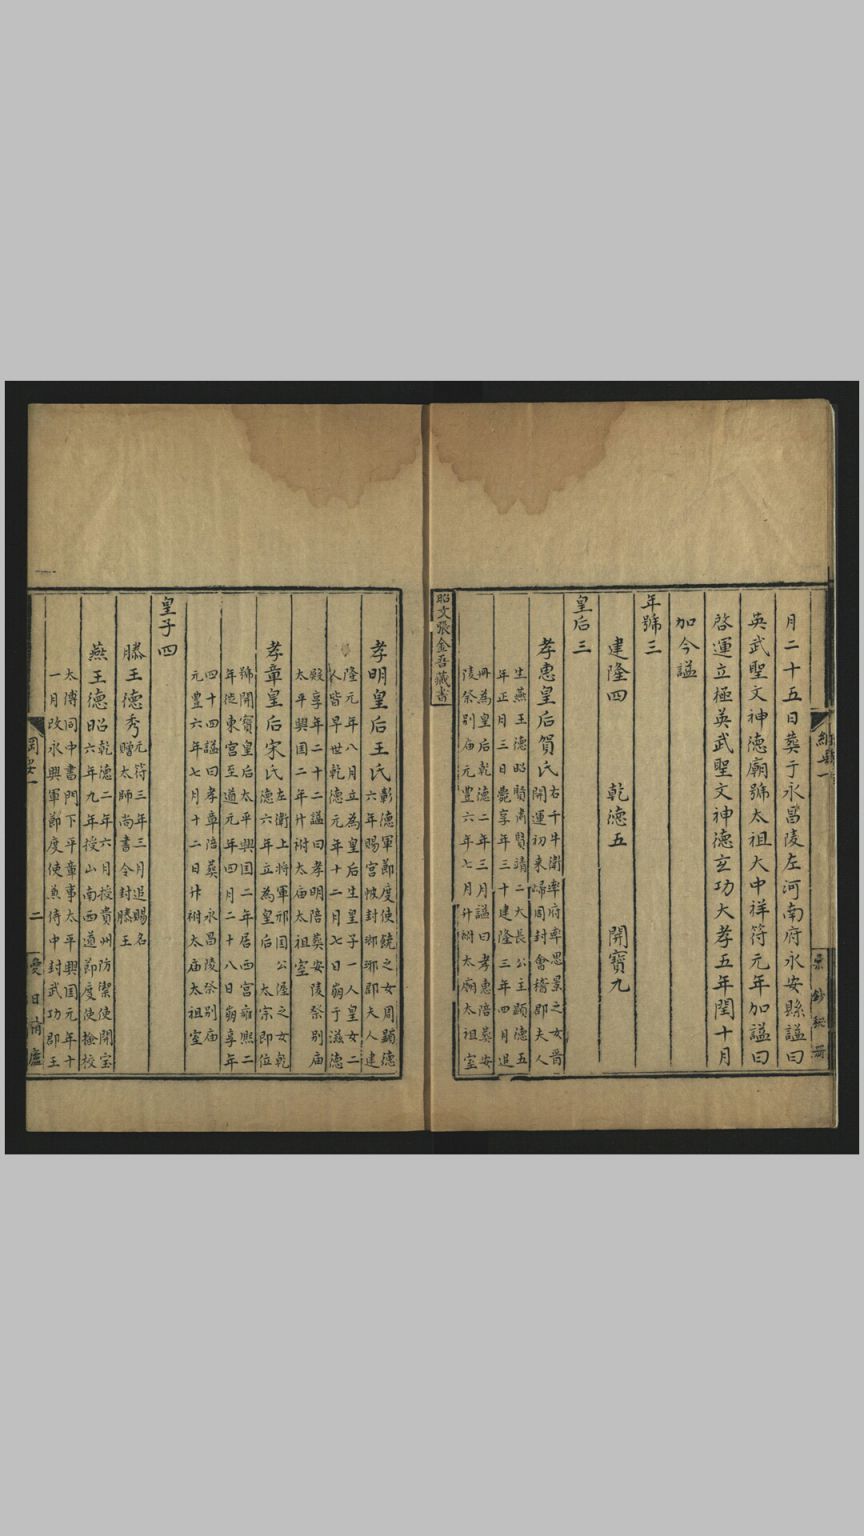 月二十五日葬于永昌陵左河南府永安縣謚曰
英武聖文神德廟號太祖大中祥符元年加謚曰
啓運立極英武聖文神德玄功大孝五年閏十月
加今謚
年號三
建隆四 乾德五 開寶九
皇后三
孝惠皇后賀氏右千牛衛率府率思景之女晉
開運初來歸周封會稽郡夫人
生燕王德昭贊肅賢靖二大長公主顯德五
年正月三日薨享年三十建隆三年四月追
冊為皇后乾德二年三月謚曰孝惠陪葬安
陵祭別庙元豐六年七月升祔太廟太祖室
昭文張金吾藏書
孝明皇后王氏彰德軍節度使饒之女周顯德
六年賜宮帔封瑯琊郡夫人建
隆元年八月立為皇后生皇子一人皇女二
人皆早世乾德元年十二月七日崩于滋德
殿享年二十二謚曰孝明陪葬安陵祭別庙
太平興囯二年升祔太庙太祖室
孝章皇后宋氏左衛上將軍邢囯公偓之女乾
德六年立為皇后 太宗即位
號開寶皇后太平興囯二年居西宮雍熙二
年徙東宮至道元年四月二十八日崩享年
四十四謚曰孝章陪葬 永昌陵祭別庙
元豊六年七月十二日升祔太庙太祖室
皇子四
滕王德秀元符三年三月追賜名
贈太師尚書令封滕王
燕王德昭乾德二年六月授貴州防禦使開宝
六年九年授山南西道節度使檢校
太傅同中書門下平章事太平興囯元年十
一月改永興軍節度使兼侍中封武功郡王
二
愛日精廬